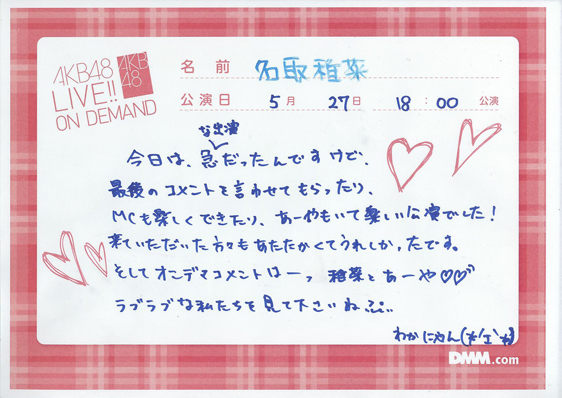 AKB48
LIVE!!
ON DEMAND
AKB
48
名前 名取稚菜
公演日 5月 27日 18:00 公演
な出演
今日は、急だったんですけど、
最後のコメントを言わせてもらったり、
MCも楽しくできたり、あーやもいて楽しい公演でした!
来ていただいた方々もあたたかくてうれしかったです。
そしてオンデマコメントはーっ 稚菜とあーや♡♡
ラブラブな私たちを見て下さいねぷぷ
わかにゃん(*'エ'*)
DMM.com